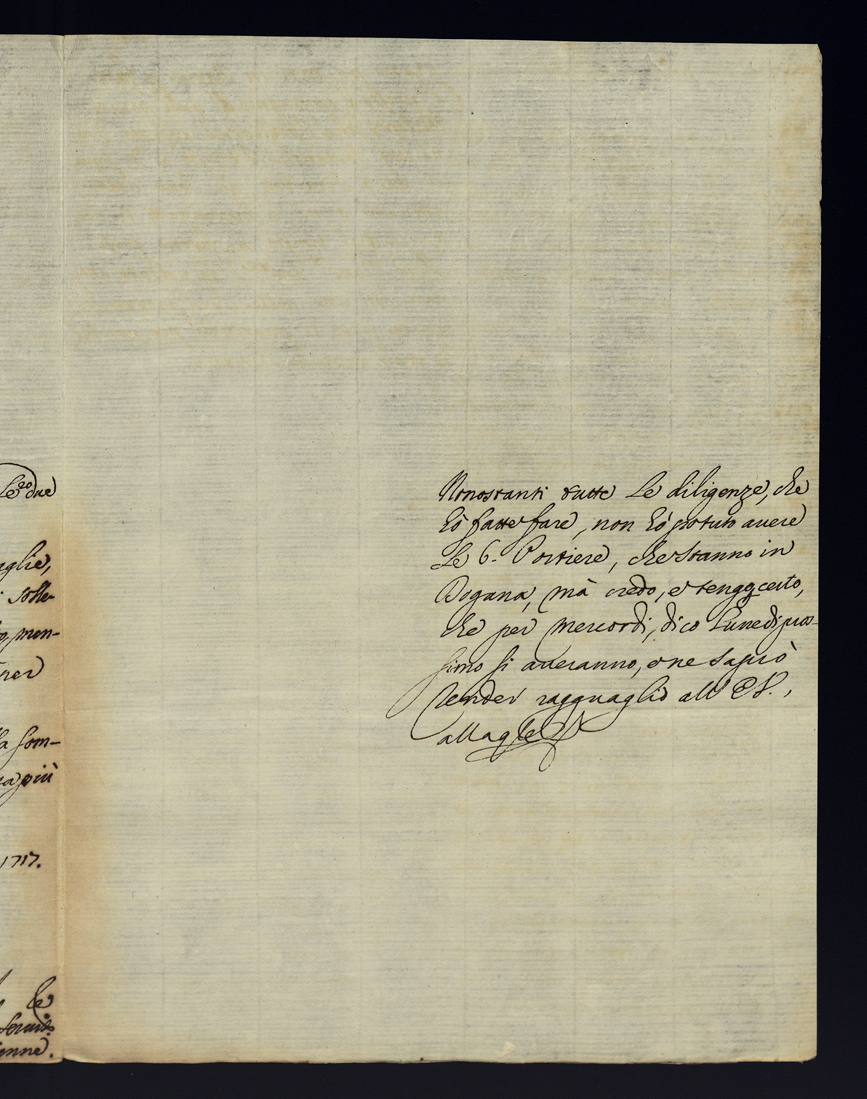 Le due
aglie,
solle-
mon-
per
la som-
più
1717.
Le
Nonostanti tutte le diligenze, che
hò fatte fare, non hò potuto avere
le 6. Portiere, che stanno in
Dogana, mà credo, e tengo certo,
che per mercordi, dico Lunedi pros-
simo si averanno, e ne saprò
render ragguaglio all' E.V.,
alla qle